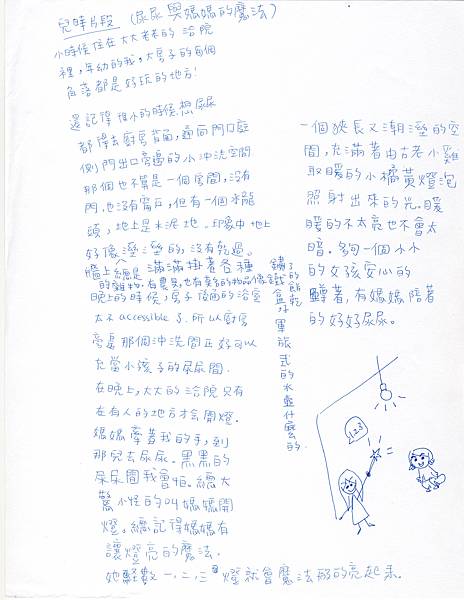 兒時片段 (尿尿與媽媽的魔法)
小時候住在大大老老的治院
裡,年幼的我,大房子的每個
角落都是好玩的地方!
還記得很小的時候,想尿尿
都得去廚房旁角,通向門口庭
側門出口旁邊的小沖洗空間
那個也不算是一個房間,沒有
門,也沒有窗戶,但有一個水龍
頭,地上是水泥地。印象中地上
好像溼溼的,沒有乾過。
牆上總是滿滿掛著各種
的雜物,有農具,也有更多的物品像
鏽了的餅乾
鐵盒、軍旅式的水壺什麼的.
晚上的時候,房子後面的浴室
太不accessible了.所以廚房
旁邊那個沖洗間正好可以
充當小孩子的尿尿間.
在晚上,大大的治院只有
在有人的地方才會開燈.
媽媽牽著我的手,到
那兒去尿尿.黑黑的
尿尿間我會怕.總大
驚小怪的叫媽媽開
燈。總記得媽媽有
讓燈亮的魔法.
她輕數一.二.三 燈就會魔法般的亮起來.
一個狹長又潮溼的空
間,充滿著由古老小雞
取暖的小橘黃燈泡
照射出來的光。暖
暖的不太亮也不會太
暗。夠一個小小
的女孩安心的
蹲著,有媽媽陪著
的好好尿尿。
123